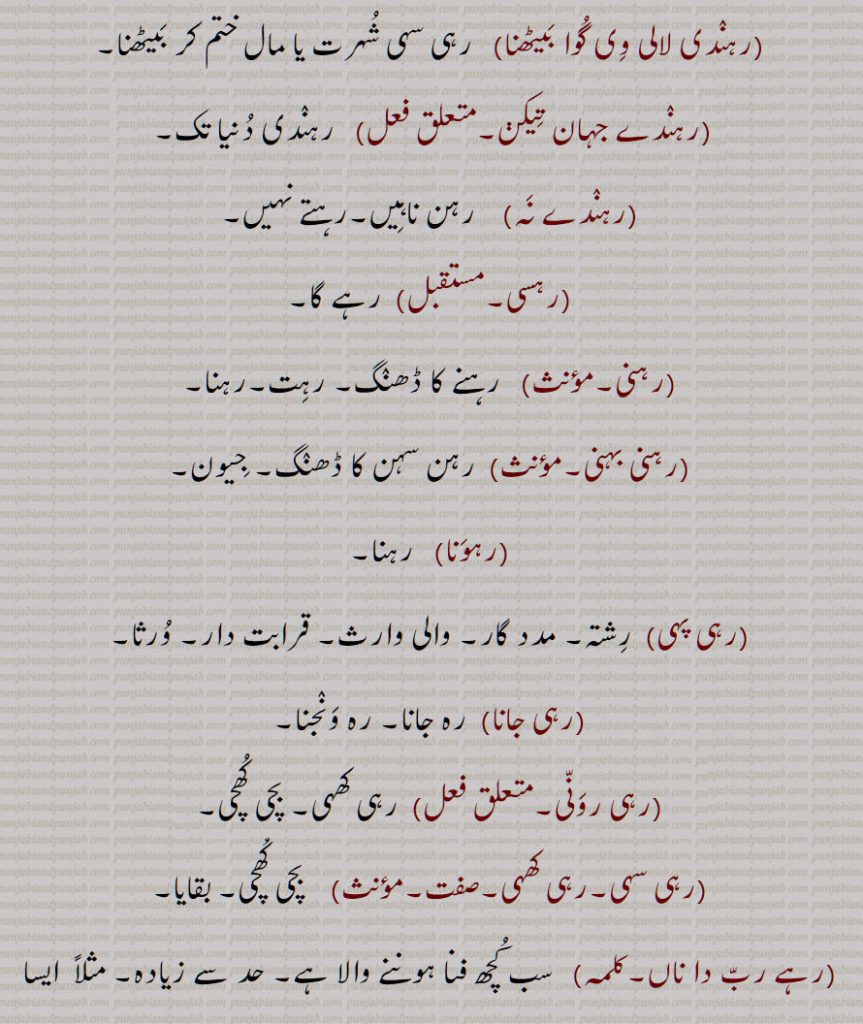 (رہنْدی لالی وِی گُوا بَیٹھنا) رہی سہی شُہرت یا مال ختم کر بَیٹھنا۔
(رہنْدے جہان تِیکن۔متعلق فعل) رہنْدی دُنیا تک۔
(رہنْدے نَہ) رہن ناہِیں۔رہتے نہیں۔
(رہسی۔مستقبل) رہے گا۔
(رہنی۔مؤنث) رہنے کا ڈھنْگ۔ رہِت۔رہنا۔
(رہنی بہنی۔مؤنث) رہن سہن کا ڈھنْگ۔ جِیون۔
(رہوَنا) رہنا۔
(رہی پہی) رِشتہ۔ مدد گار۔ والی وارث۔ قرابت دار۔ وُرثا۔
(رہی جانا) رہ جانا۔ رہ وَنْجنا۔
(رہی روَنّی۔متعلق فعل) رہی کھہی۔ بچی کُھچی۔
(رہی سہی۔رہی کھہی۔صفت۔مؤنث) بچی کُھچی۔ بقایا۔
(رہے ربّ دا ناں۔کلمہ) سب کُچھ فنا ہوننے والا ہے۔ حد سے زیادہ۔ مثلاً ایسا
punjabiandpunjab com